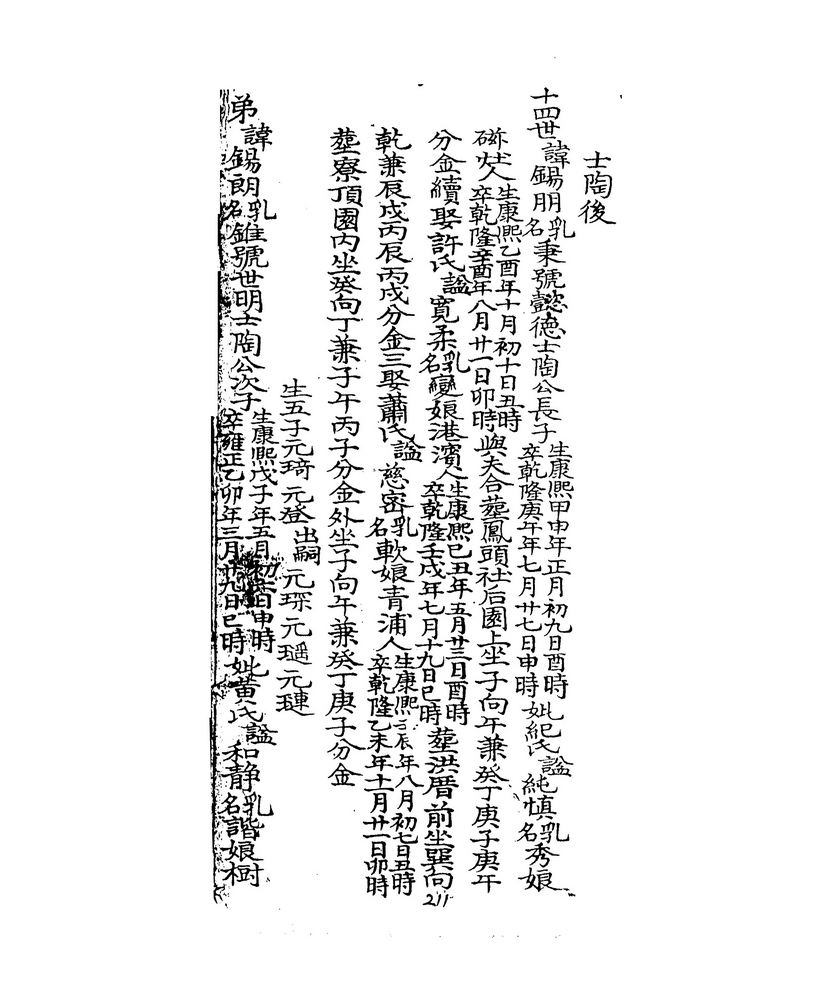 士陶後
十四世諱錫朋乳名秉號懿德士陶公長子生康熙甲申年正月初九日酉時卒乾隆庚午年七月廿七日申時妣紀氏謚純慎乳名秀娘
生康熙乙酉年十月初十日丑時卒乾隆辛酉年八月廿一日卯時與夫合塟鳳頭社后園上坐子向午兼癸丁庚子庚午
分金續娶許氏謚寬柔乳名變娘港濱人生康熙己丑年五月廿三日酉時卒乾隆壬戌年七月十九日巳時塟洪厝前坐巽向
乾兼辰戌丙辰丙戌分金三娶蕭氏謚慈密乳名軟娘青浦人生康熙壬辰年八月初七日丑時卒乾隆乙未年十一月廿一日卯時
塟寮頂園內坐癸向丁兼子午丙子分金外坐子向午兼癸丁庚子分金
生五子元琦元登出嗣元琛元瑶元璉
弟諱錫朗乳名錐號世明士陶公次子生康熙戊子年五月初六日申時卒雍正乙卯年三月廿九日巳時妣黃氏謚和靜乳名諧娘樹
211